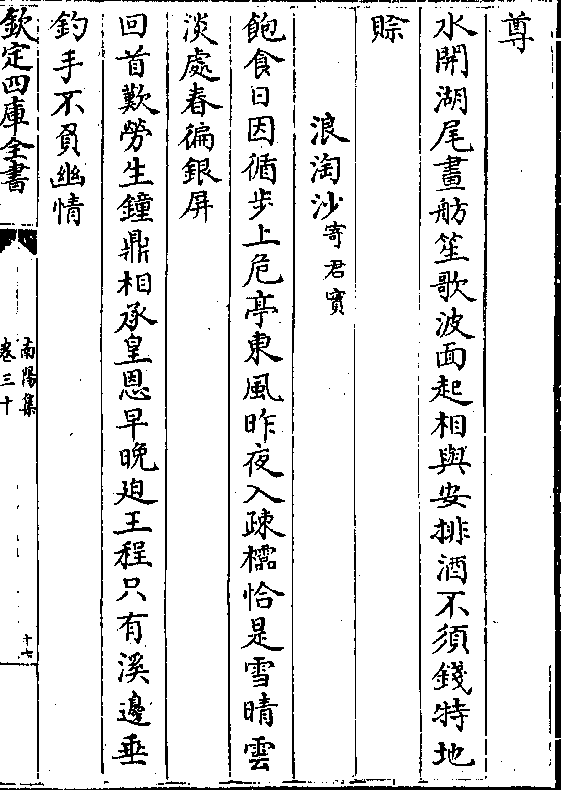 尊
水開湖尾畫舫笙歌波面起相與安排酒不須錢特地
賖
浪淘沙寄君實
飽食日因循步上危亭東風昨夜入疎櫺恰是雪晴雲
淡處春徧銀屏
回首歎勞生鐘鼎相承皇恩早晚廹王程只有溪邊垂
釣手不負幽情
欽定四庫全書
南陽集
卷三十
十七